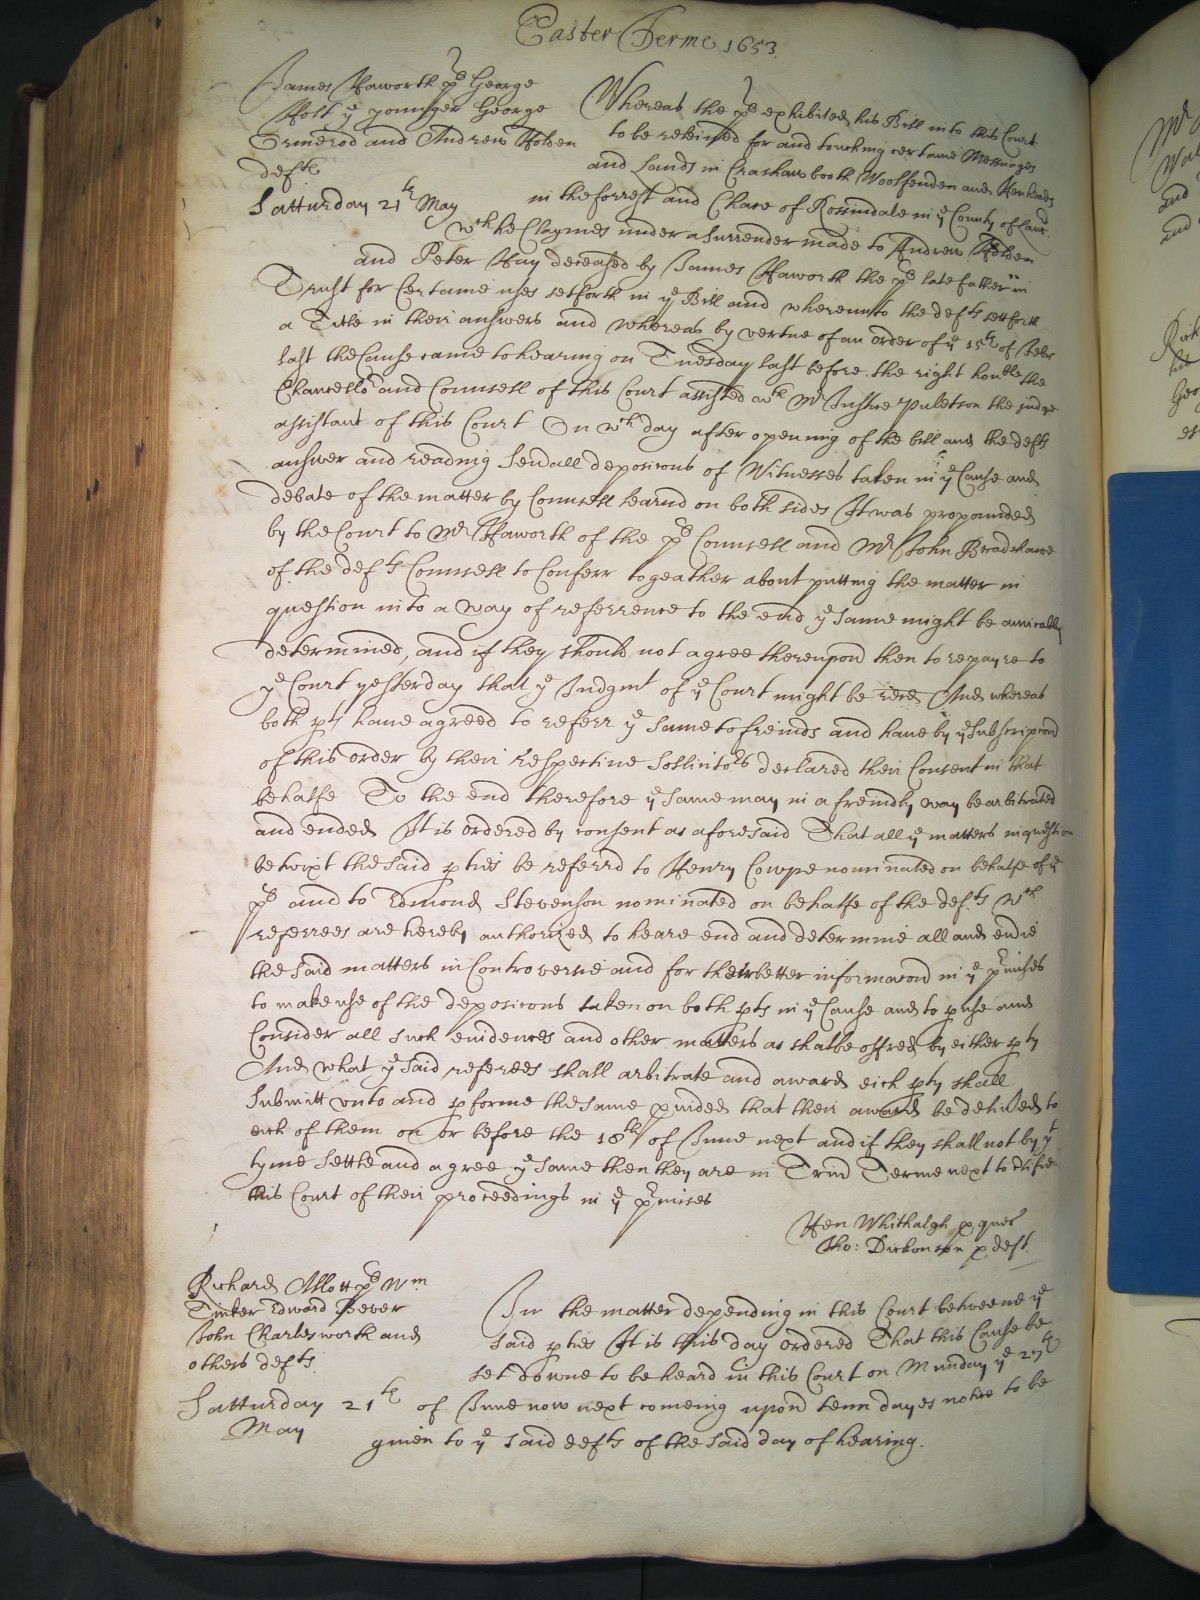 Easter Terme 1653
James Haworth plt George
Holt ye younger George
Ormerod and Andrew Holden
defts
Satturday 21th May
Whereas the plt exhibited his Bill into this Court
to be releived for and touching certaine Messuages
and Lands in Crashawbooth Woolfenden and Henheads
in the forrest and Chace of Rossindale in ye County of Lanc
wch he Claymes under a surrender made to Andrew Holden
and Peter Hay deceased by James Haworth the plt late father in
Trust for Certaine uses setforth in ye Bill and whereunto the defts settforth
a Title in their answers and whereas by vertue of an order of ye 15th of Febr
last the Cause came to hearing on Tuesday last before the right honble the
Chancellor and Counsell of this Court assisted wth Mr Justice Puleston the judge
assistant of this Court On wch day after opening of the bill and the defts
answer and reading severall deposicons of Witnesses taken in ye Cause and
debate of the matter by Counsell learnd on both sides It was propounded
by the Court to Mr Haworth of the plt Counsell and Mr John Bradshawe
of the defts Counsell to Conferr togeather about putting the matter in
question into a way of referrence to the end ye same might be amicably
determined, and if they should not agree thereupon then to repayre to
ye Court yesterday that ye Judgmt of ye Court might be And whereas
both pts have agreed to referr ye same to freinds and have by ye subscripcon
of this order by their respective sollicitors declared their Consent in that
behalfe To the end therefore ye same may in a freindly way be arbitrated
and ended It is ordered by consent as aforesaid That all ye matters in question
betwixt the said pties be referrd to Henry Cowpe nominated on behalfe of ye
plt and to Edmond Stevenson nominated on behalfe of the defts wch
referrees are hereby authorized to heare end and determine all and
the said matters in Controversie and for their better informacon in ye pmises
to make use of the deposicons taken on both pts in ye Cause and to pruse and
Consider all such evidences and other matters as shalbe offred by either pty
And what ye said referees shall arbitrate and award eich pty shall
Submitt unto and pforme the same pvided that their award be delivered to
eich of them on or before the 18th of June next and if they shall not by yt
tyme settle and agree ye same then they are in Trin Terme next to Ctifie
this Court of their proceedings in ye pmises
Hen Whithalgh p quer
Tho: Dickonson p deft
Richard Allott plt Wm
Tinker Edward Bever
John Charlesworth and
others defts
Satturday 21th
May
In the matter depending in this Court betweene ye
said pties It is this day ordered That this Cause be
set downe to be heard in this Court on Munday ye 27th
of June now next comeing upon tenn dayes notice to be
given to ye said defts of the said day of hearing.